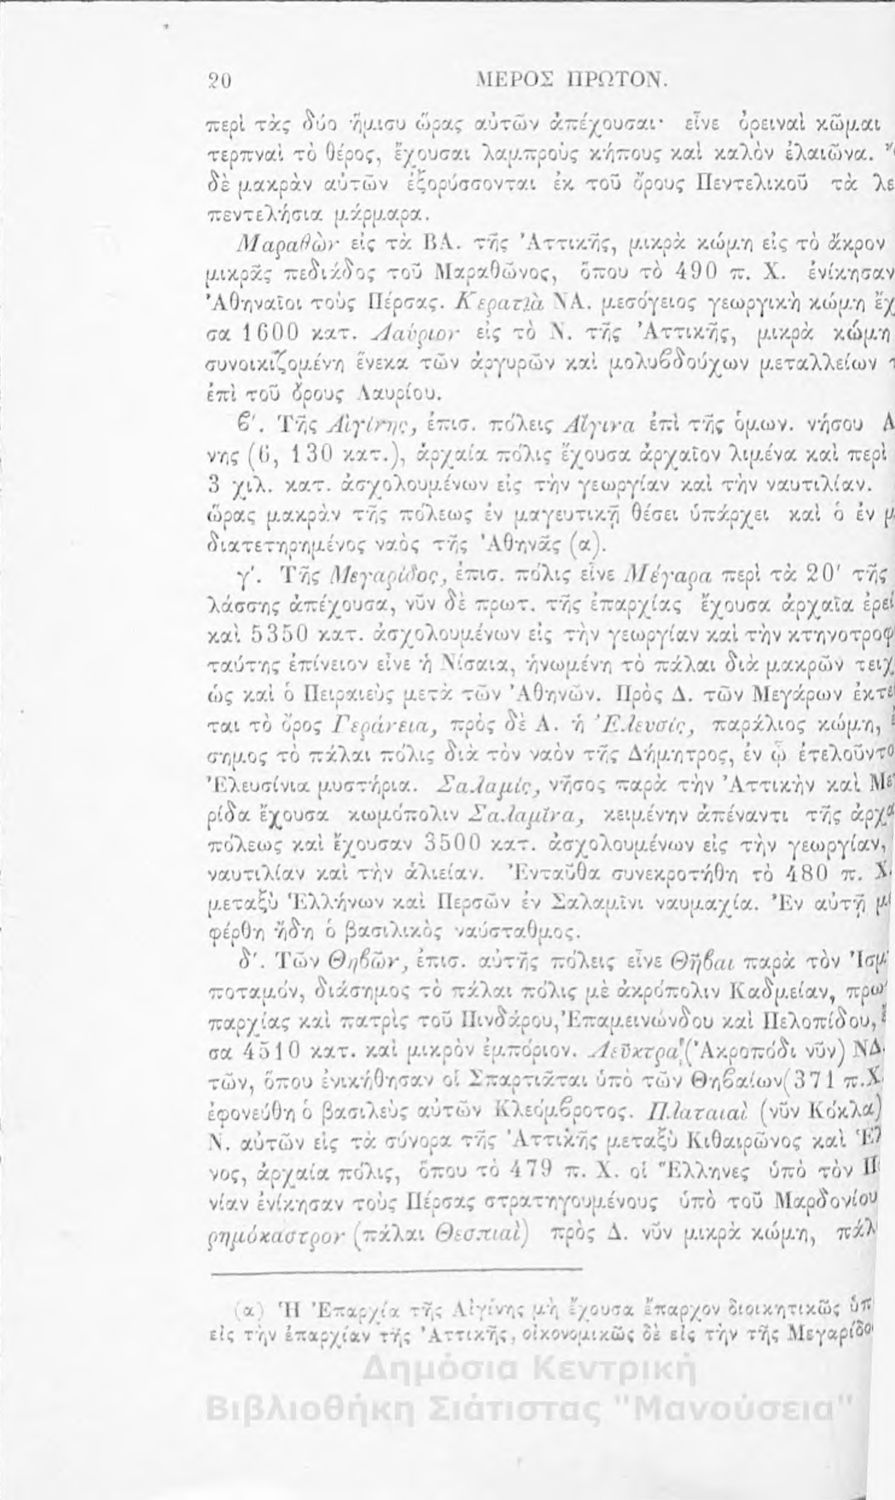 20 ΜΕΡΟΣ ΠΡΩΤΟΝ.
περὶ τὰς δύο ἥμισυ ὥρας αὐτῶν ἀπέχουσαι· εἶνε ὀρειναὶ κῶμαι
τερπναὶ τὸ θέρος, ἔχουσαι λαμπροὺς κήπους καὶ καλὸν ἐλαιῶνα.
δὲ μακρὰν αὐτῶν ἐξορύσσονται ἐκ τοῦ ὄρους Πεντελικοῦ τὰ λε
πεντελήσια μάρμαρα.
Μαραθὼν εἰς τὰ ΒΑ. τῆς Ἀττικῆς, μικρὰ κώμη εἰς τὸ ἄκρον
μικρᾶς πεδιάδος τοῦ Μαραθῶνος, ὅπου τὸ 490 π. Χ. ἐνίκησαν
Ἀθηναῖοι τοὺς Πέρσας. Κερατιὰ ΝΑ. μεσόγειος γεωργικὴ κώμη ἔχ
σα 1600 κατ. Λαύριον εἰς τὸ Ν. τῆς Ἀττικῆς, μικρὰ κώμη
συνοικιζομένη ἕνεκα τῶν ἀργυρῶν καὶ μολυβδούχων μεταλλείων τ
ἐπὶ τοῦ ὄρους Λαυρίου.
ϐ'. Τῆς Αἰγίνης, ἐπισ. πόλεις Αἴγινα ἐπὶ τῆς ὁμων. νήσου Α
νης (6,130 κατ.), ἀρχαία πόλις ἔχουσα ἀρχαῖον λιμένα καὶ περὶ
3 χιλ. κατ. ἀσχολουμένων εἰς τὴν γεωργίαν καὶ τὴν ναυτιλίαν.
ὥρας μακρὰν τῆς πόλεως ἐν μαγευτικῇ θέσει ὑπάρχει καὶ ὁ ἐν μ
διατετηρημένος ναὸς τῆς Ἀθηνᾶς (α).
γ'. Τῆς Μεγαρίδος, ἐπισ. πόλις εἶνε Μέγαρα περὶ τὰ 20' τῆς
λάσσης ἀπέχουσα, νῦν δὲ πρωτ. τῆς ἐπαρχίας ἔχουσα ἀρχαῖα ἐρεί
καὶ 5350 κατ. ἀσχολουμένων εἰς τὴν γεωργίαν καὶ τὴν κτηνοτροφ
ταύτης ἐπίνειον εἶνε ἡ Νίσαια, ἡνωμένη τὸ πάλαι διὰ μακρῶν τειχ
ὡς καὶ ὁ Πειραιεὺς μετὰ τῶν Ἀθηνῶν. Πρὸς Δ. τῶν Μεγάρων ἐκτε
ται τὸ ὄρος Γεράνεια, πρὸς δὲ Α. ἡ Ἐλευσίς, παράλιος κώμη,
σημος τὸ πάλαι πόλις διὰ τὸν ναὸν τῆς Δήμητρος, ἐν ᾧ ἐτελοῦντο
Ἐλευσίνια μυστήρια. Σαλαμίς, νῆσος παρὰ τὴν Ἀττικὴν καὶ Με
ρίδα ἔχουσα κωμόπολιν Σαλαμῖνα, κειμένην ἀπέναντι τῆς ἀρχα
πόλεως καὶ ἔχουσαν 3500 κατ. ἀσχολουμένων εἰς τὴν γεωργίαν,
ναυτιλίαν καὶ τὴν ἁλιείαν. Ἐνταῦθα συνεκροτήθη τὸ 480 π. Χ.
μεταξὺ Ἑλλήνων καὶ Περσῶν ἐν Σαλαμῖνι ναυμαχία. Ἐν αὐτῇ μ
φέρθη ἤδη ὁ βασιλικὸς ναύσταθμος.
δ'. Τῶν Θηβῶν, ἐπισ. αὐτῆς πόλεις εἶνε Θῆβαι παρὰ τὸν Ἰσμ
ποταμόν, διάσημος τὸ πάλαι πόλις μὲ ἀκρόπολιν Καδμείαν, πρω
παρχίας καὶ πατρὶς τοῦ Πινδάρου, Ἐπαμεινώνδου καὶ Πελοπίδου, ἔ
σα 4510 κατ. καὶ μικρὸν ἐμπόριον. Λεῦκτρα (Ἀκροπόδι νῦν) ΝΔ.
τῶν, ὅπου ἐνικήθησαν οἱ Σπαρτιᾶται ὑπὸ τῶν Θηβαίων (371 π.Χ.
ἐφονεύθη ὁ βασιλεὺς αὐτῶν Κλεόμβροτος. Πλαταιαὶ (νῦν Κόκλα)
Ν. αὐτῶν εἰς τὰ σύνορα τῆς Ἀττικῆς μεταξὺ Κιθαιρῶνος καὶ Ἑλ
νος, ἀρχαία πόλις, ὅπου τὸ 479 π. Χ. οἱ Ἕλληνες ὑπὸ τὸν Π
νίαν ἐνίκησαν τοὺς Πέρσας στρατηγουμένους ὑπὸ τοῦ Μαρδονίου
ρημόκαστρον (πάλαι Θεσπιαὶ) πρὸς Δ. νῦν μικρὰ κώμη, πάλ
(α) Ἡ Ἐπαρχία τῆς Αἰγίνης μὴ ἔχουσα ἔπαρχον διοικητικῶς ὑπ
εἰς τὴν ἐπαρχίαν τῆς Ἀττικῆς, οἰκονομικῶς δὲ εἰς τὴν τῆς Μεγαρίδο
Δημόσια Κεντρική
Βιβλιοθήκη Σιάτιστας "Μανούσεια"